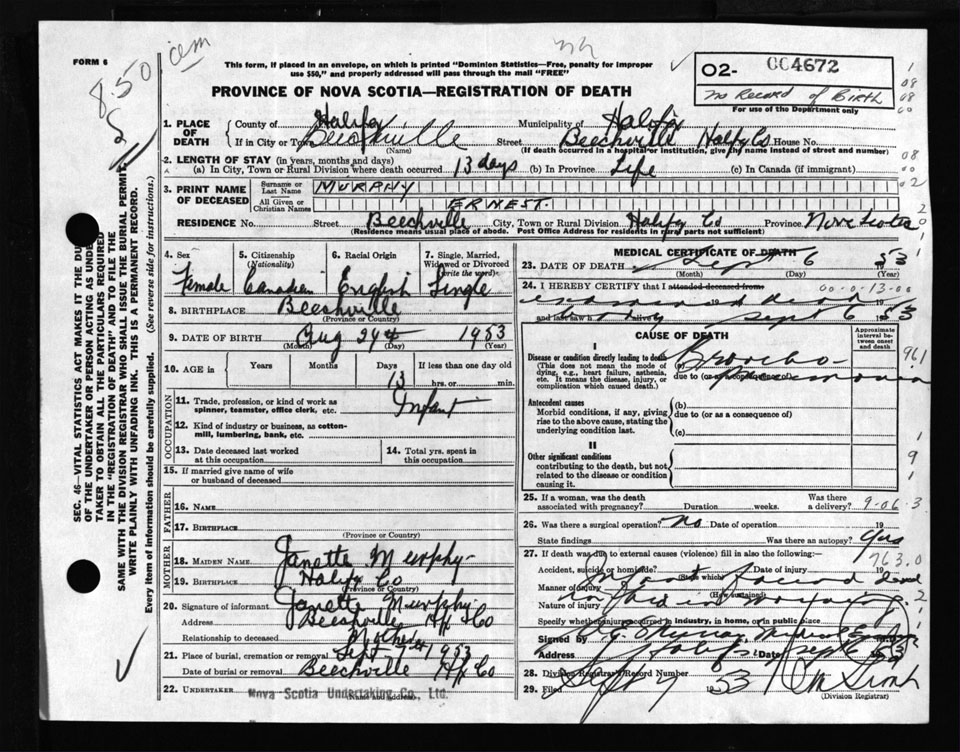 FORM 6
8.50
This form, if placed in an envelope, on which is printed "Dominion Statistics—Free, penalty for improper
use $50," and properly addressed will pass through the mail "FREE"
O2- 004672
No Record of Birth
For use of the Department only
PROVINCE OF NOVA SCOTIA—REGISTRATION OF DEATH
1. PLACE OF DEATH
County of Halifax Municipality of Halifax
If in City or Town Beechville Street Beechville Halifx Co House No.
(Name) (If death occurred in a hospital or institution, give its name instead of street and number)
2. LENGTH OF STAY (in years, months and days)
(a) In City, Town or Rural Division where death occurred 13 days (b) In Province Life (c) In Canada (if immigrant)
3. PRINT NAME OF DECEASED
Surname or Last Name MURPHY
All Given or Christian Names ERNEST.
RESIDENCE No. Street Beechville City, Town or Rural Division Halifx Co Province Nova Scotia
(Residence means usual place of abode. Post Office Address for residents in rural parts not sufficient)
4. Sex Female
5. Citizenship (Nationality) Canadian
6. Racial Origin English
7. Single, Married, Widowed or Divorced (Write the word) Single
8. BIRTHPLACE Beechville
(Province or Country)
9. DATE OF BIRTH Aug 24th 1953
(Month) (Day) (Year)
10. AGE in Years Months Days If less than one day old
13 hrs. or min.
OCCUPATION
11. Trade, profession or kind of work as spinner, teamster, office clerk, etc. Infant
12. Kind of industry or business, as cotton-mill, lumbering, bank, etc.
13. Date deceased last worked at this occupation
14. Total yrs. spent in this occupation
15. If married give name of wife or husband of deceased
FATHER
16. NAME
17. BIRTHPLACE
(Province or Country)
MOTHER
18. MAIDEN NAME Janette Murphy
19. BIRTHPLACE Halifx Co
(Province or Country)
20. Signature of informant Janette Murphy
Address Beechville Hfx Co
Relationship to deceased Mother
21. Place of burial, cremation or removal Sept 7th 1953
Date of burial or removal Beechville Hfx Co
22. UNDERTAKER Nova Scotia Undertaking Co., Ltd.
(Name and address)
MEDICAL CERTIFICATE OF DEATH
23. DATE OF DEATH Sept 6 1953
(Month) (Day) (Year)
24. I HEREBY CERTIFY that I attended deceased from 00-0-13-00
examined dead
and last saw h body Sept 6 1953
CAUSE OF DEATH
Approximate interval between onset and death
I
Disease or condition directly leading to death
(This does not mean the mode of dying, e.g., heart failure, asthenia, etc. It means the disease, injury, or complication which caused death.)
(a) Broncho-
due to (or as a consequence of) pneumonia
Antecedent causes
Morbid conditions, if any, giving rise to the above cause, stating the underlying condition last.
(b)
due to (or as a consequence of)
(c)
II
Other significant conditions
contributing to the death, but not related to the disease or condition causing it.
25. If a woman, was the death associated with pregnancy? Duration weeks. Was there a delivery? 9-06-3
26. Was there a surgical operation? no Date of operation 19
State findings Was there an autopsy? Yes
27. If death was due to external causes (violence) fill in also the following:—
Accident, suicide or homicide? Date of injury 19
763.0
(State which)
Manner of injury Infant found dead
(How sustained)
Nature of injury in bed in morning.
Specify whether injury occurred in industry, in home, or in public place
Signed by Medical
Address Halifax Date Sept 6 1953
28. Division Registrar's Record Number
29. Filed Sept 7 1953
(Division Registrar)
SEC. 46—VITAL STATISTICS ACT MAKES IT THE DU
OF THE UNDERTAKER OR PERSON ACTING AS UNDE
TAKER TO OBTAIN ALL THE PARTICULARS REQUIRED
IN THE "REGISTRATION OF DEATH" AND TO FILE THE
SAME WITH THE DIVISION REGISTRAR WHO SHALL ISSUE THE BURIAL PERMIT
WRITE PLAINLY WITH UNFADING INK. THIS IS A PERMANENT RECORD.
Every item of information should be carefully supplied. (See reverse side for instructions.)